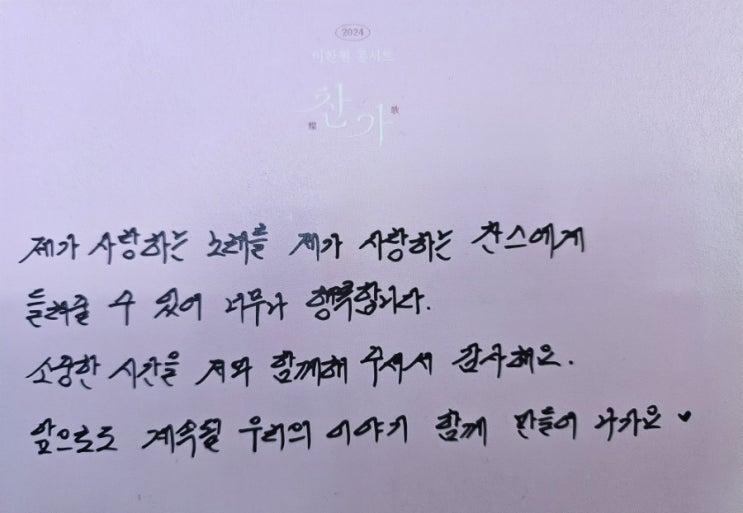 2024
이찬원 콘서트
찬가
燦 歌
제가 사랑하는 노래를 제가 사랑하는 찬스에게
들려줄 수 있어 너무나 행복합니다.
소중한 시간을 저와 함께해 주셔서 감사해요.
앞으로도 계속될 우리의 이야기 함께 만들어 나가요 ♥